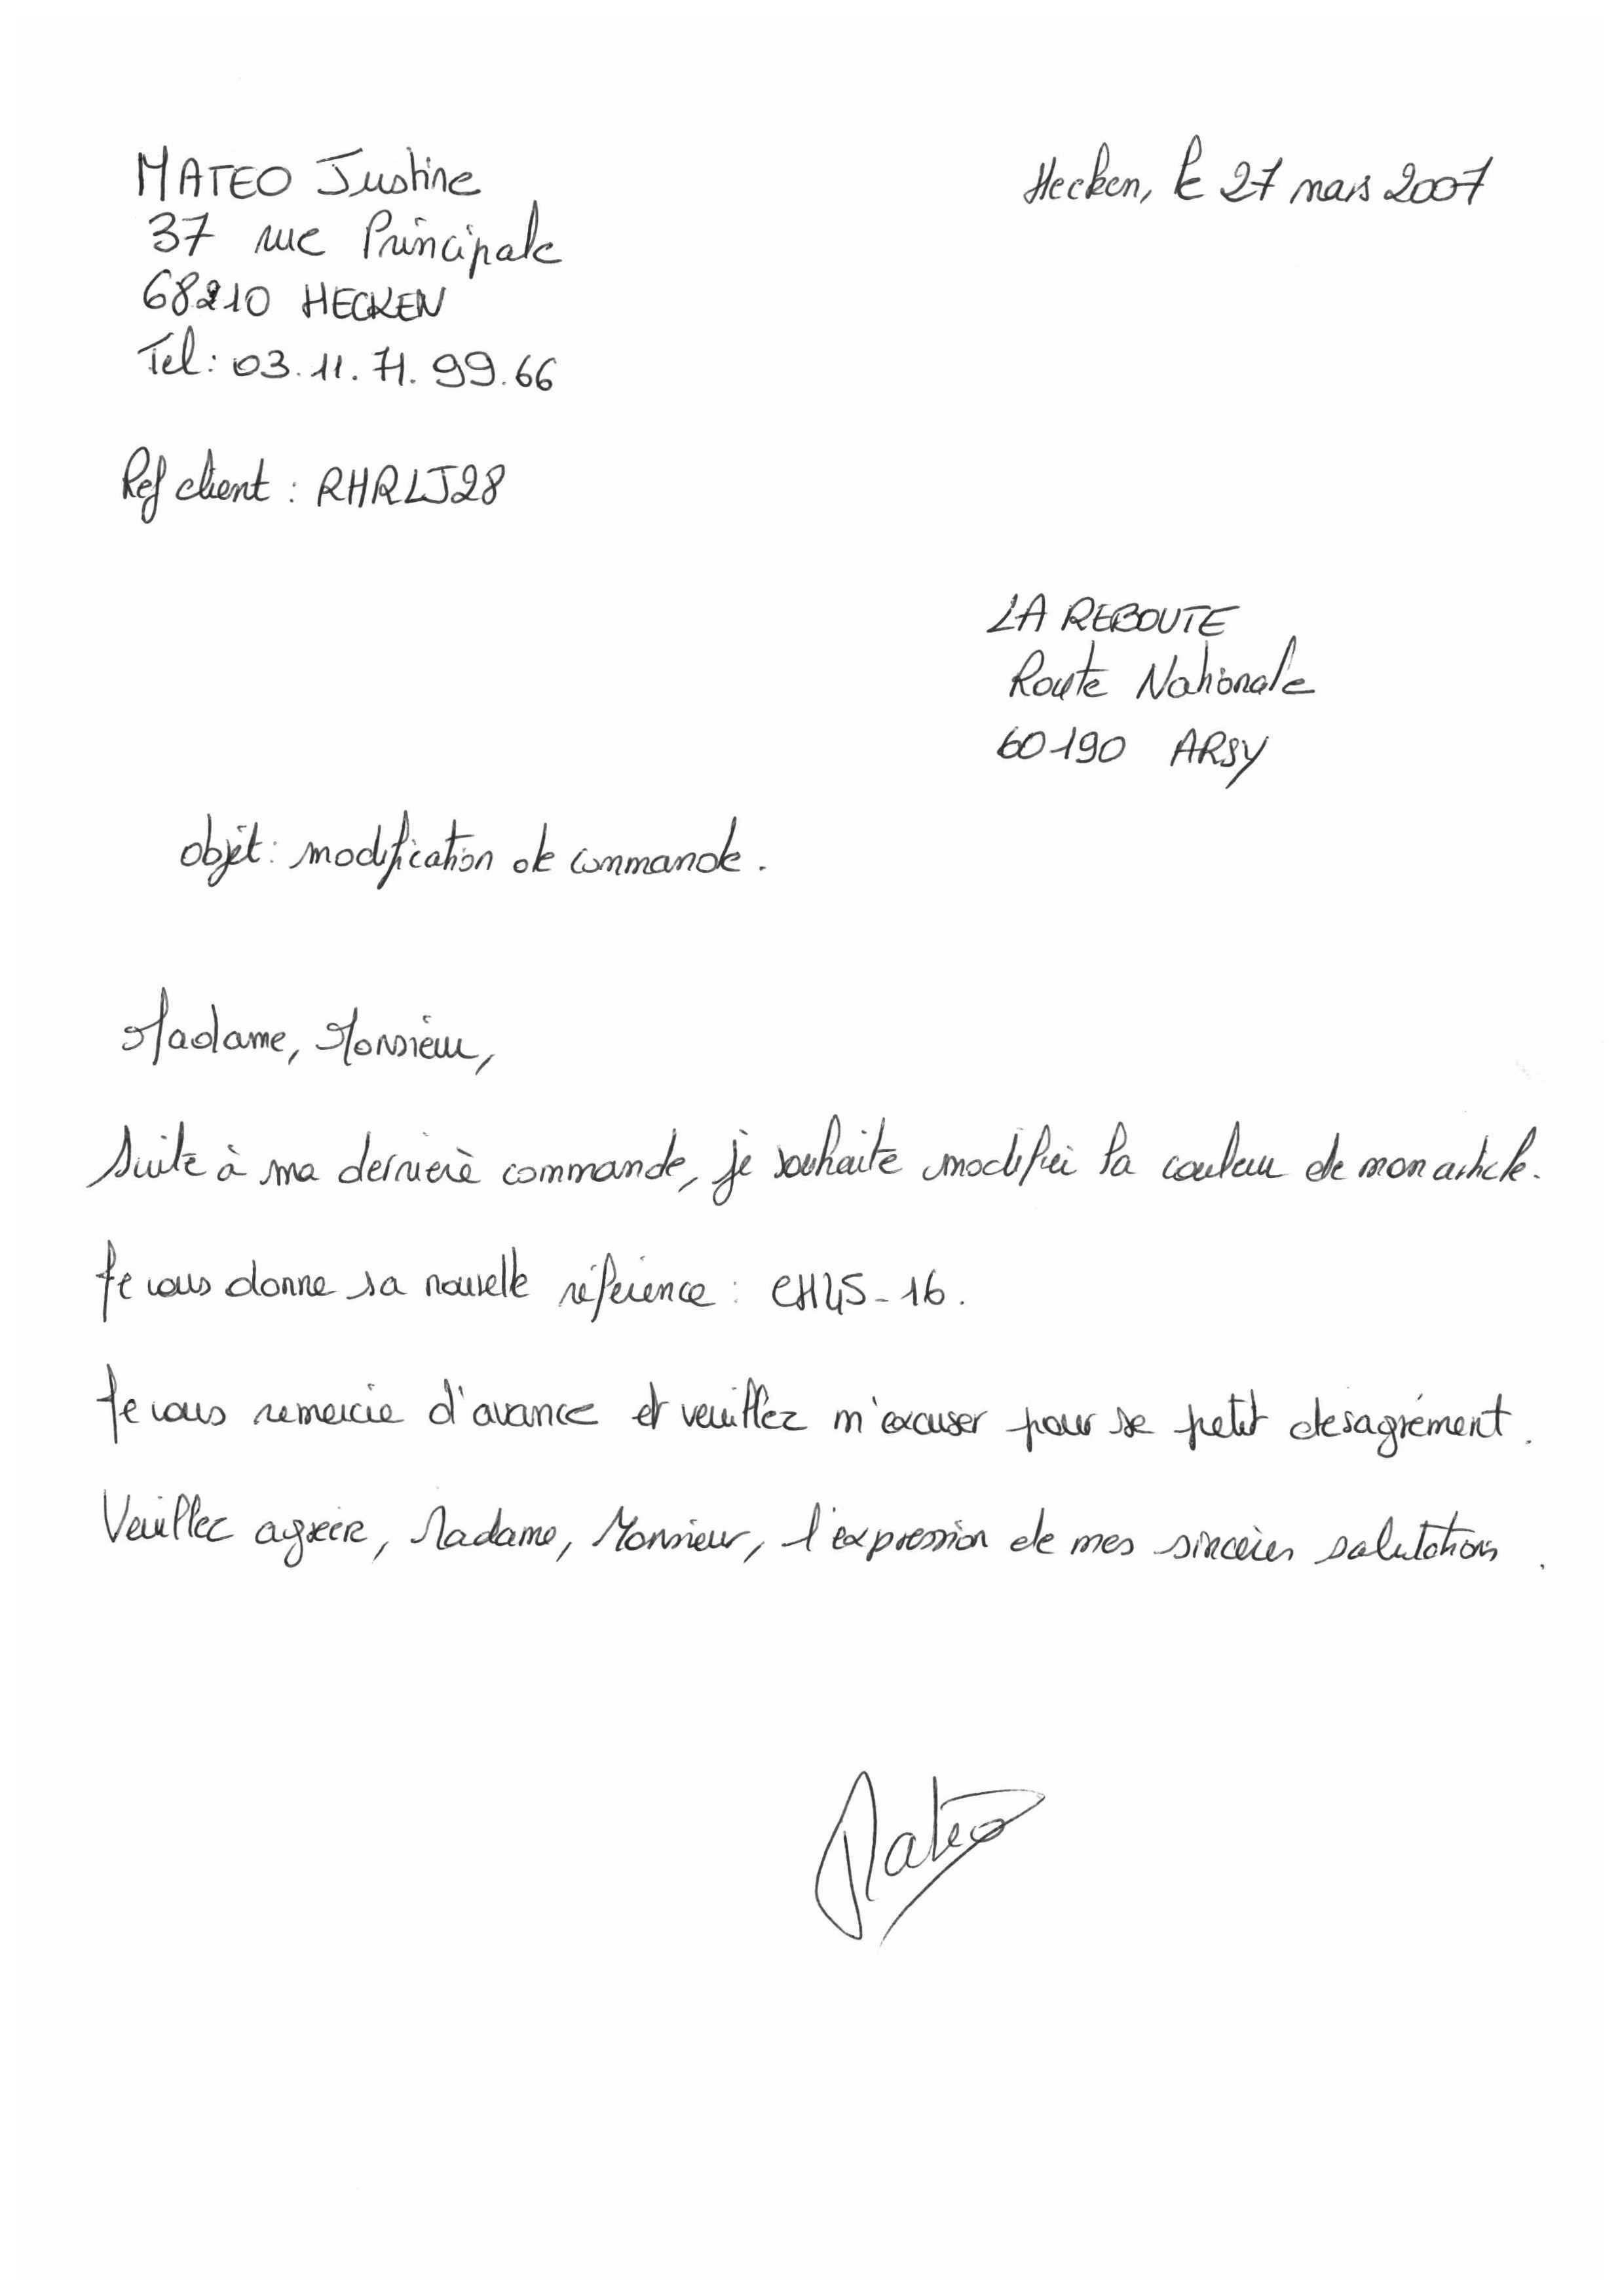 MATEO Justine
Hecken, le 27 mars 2007
37 rue Principale
68210 HECKEN
Tel : 03.11.71.99.66
Ref client : RHRLJ28
LA REBOUTE
Route Nationale
60190 ARSY
objet : modification de commande.
Madame, Monsieur,
Suite à ma dernière commande, je souhaite modifier la couleur de mon article.
Je vous donne sa nouvelle référence : CH45-16.
Je vous remercie d'avance et veuillez m'excuser pour se petit desagrément.
Veuillez agréer, Madame, Monsieur, l'expression de mes sincères salutations.
Mateo